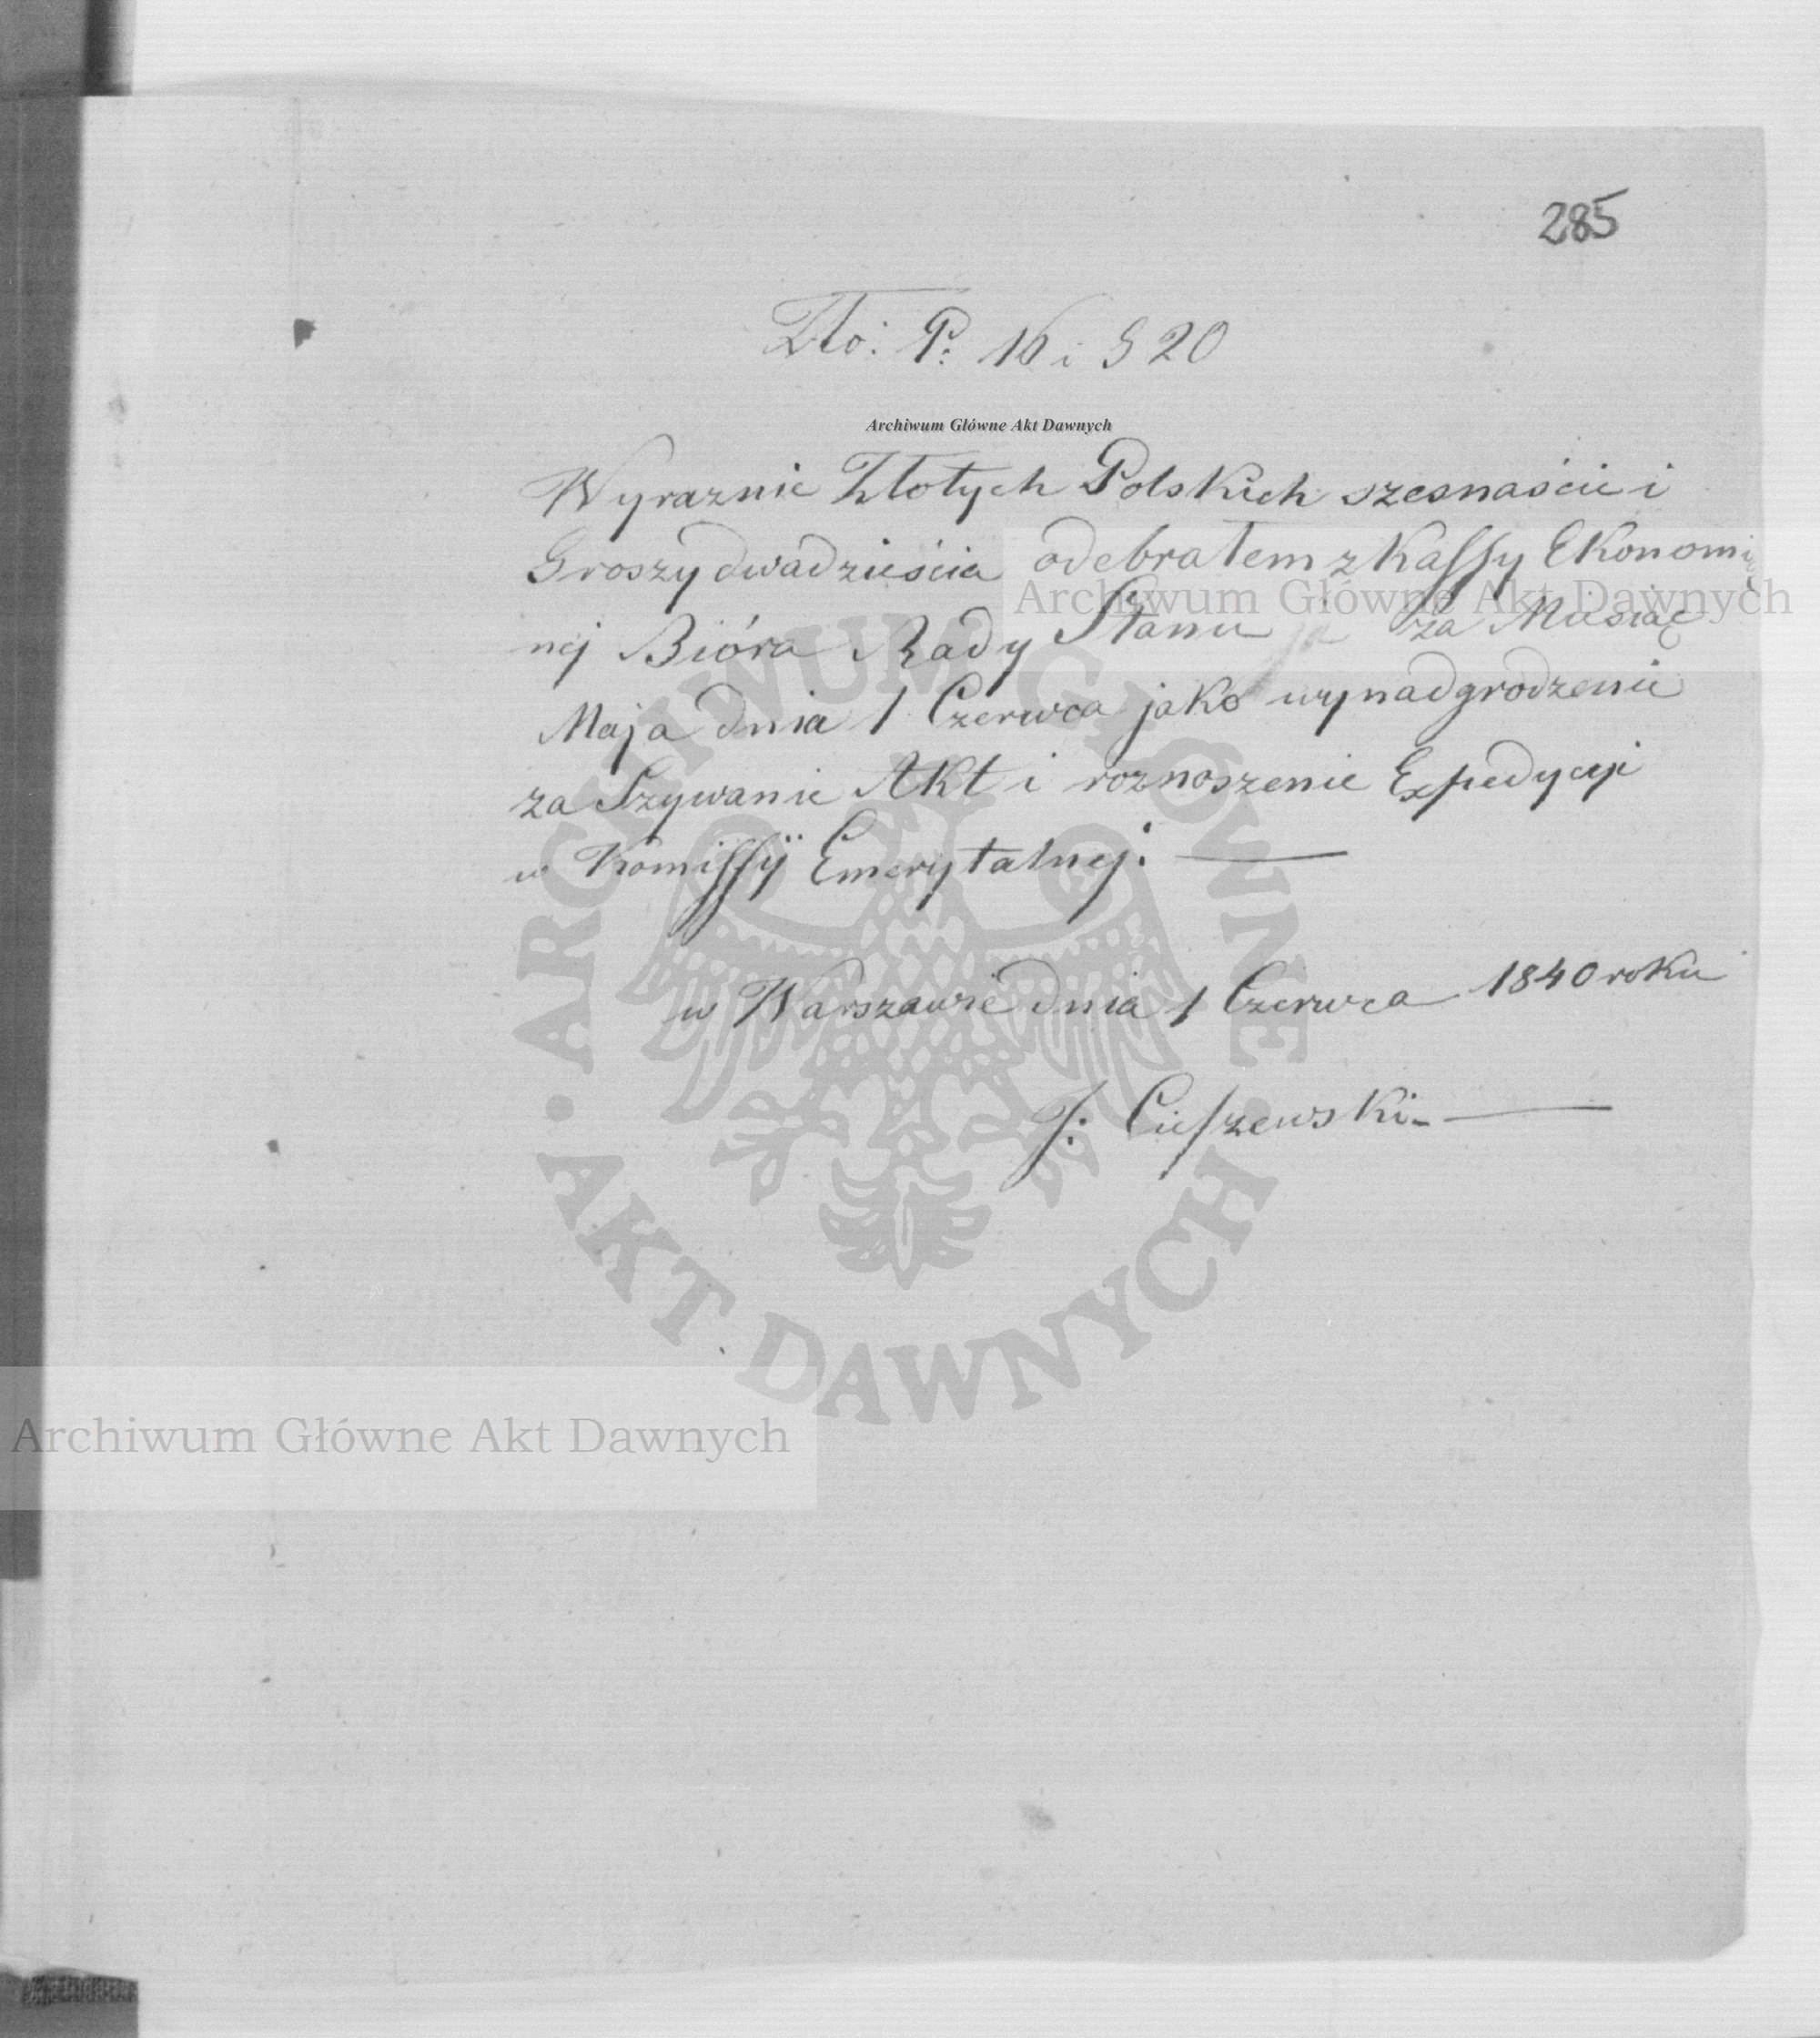 285
Zło: P. 16 i g 20
Archiwum Główne Akt Dawnych
Wyraznie Złotych Polskich szesnaście i
Groszy dwadzieścia odebrałem z Kassy Ekonomi
Archiwum Główne Akt Dawnych
nej Bióra Rady Stanu za Miesiąc
Maja dnia 1 Czerwca jako wynadgrodzenie
za Szywanie Akt i roznoszenie Expedycyi
w Komissyi Emerytalnej.
w Warszawie dnia 1 Czerwca 1840 roku
J: Cieszewski
ARCHIWUM GŁÓWNE
AKT DAWNYCH
Archiwum Główne Akt Dawnych